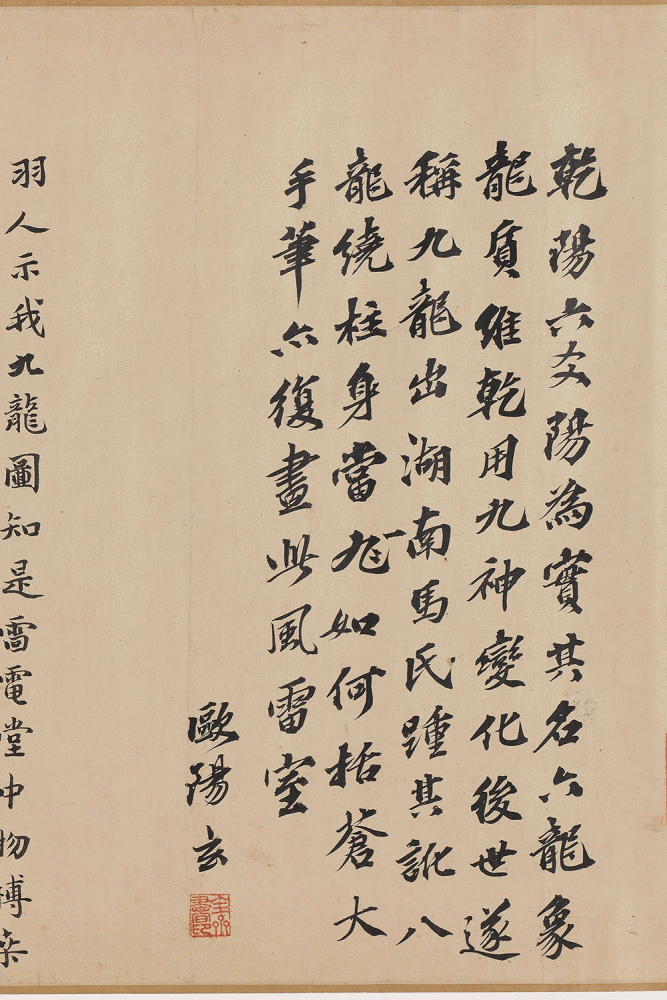 乾陽六爻陽為實其名六龍象
龍質維乾用九神變化後世遂
稱九龍出湖南馬氏踵其訛八
龍繞柱身當一如何括蒼大
手筆亦復畫此風雷室
歐陽玄
羽人示我九龍圖知是雷電堂中物搏桑